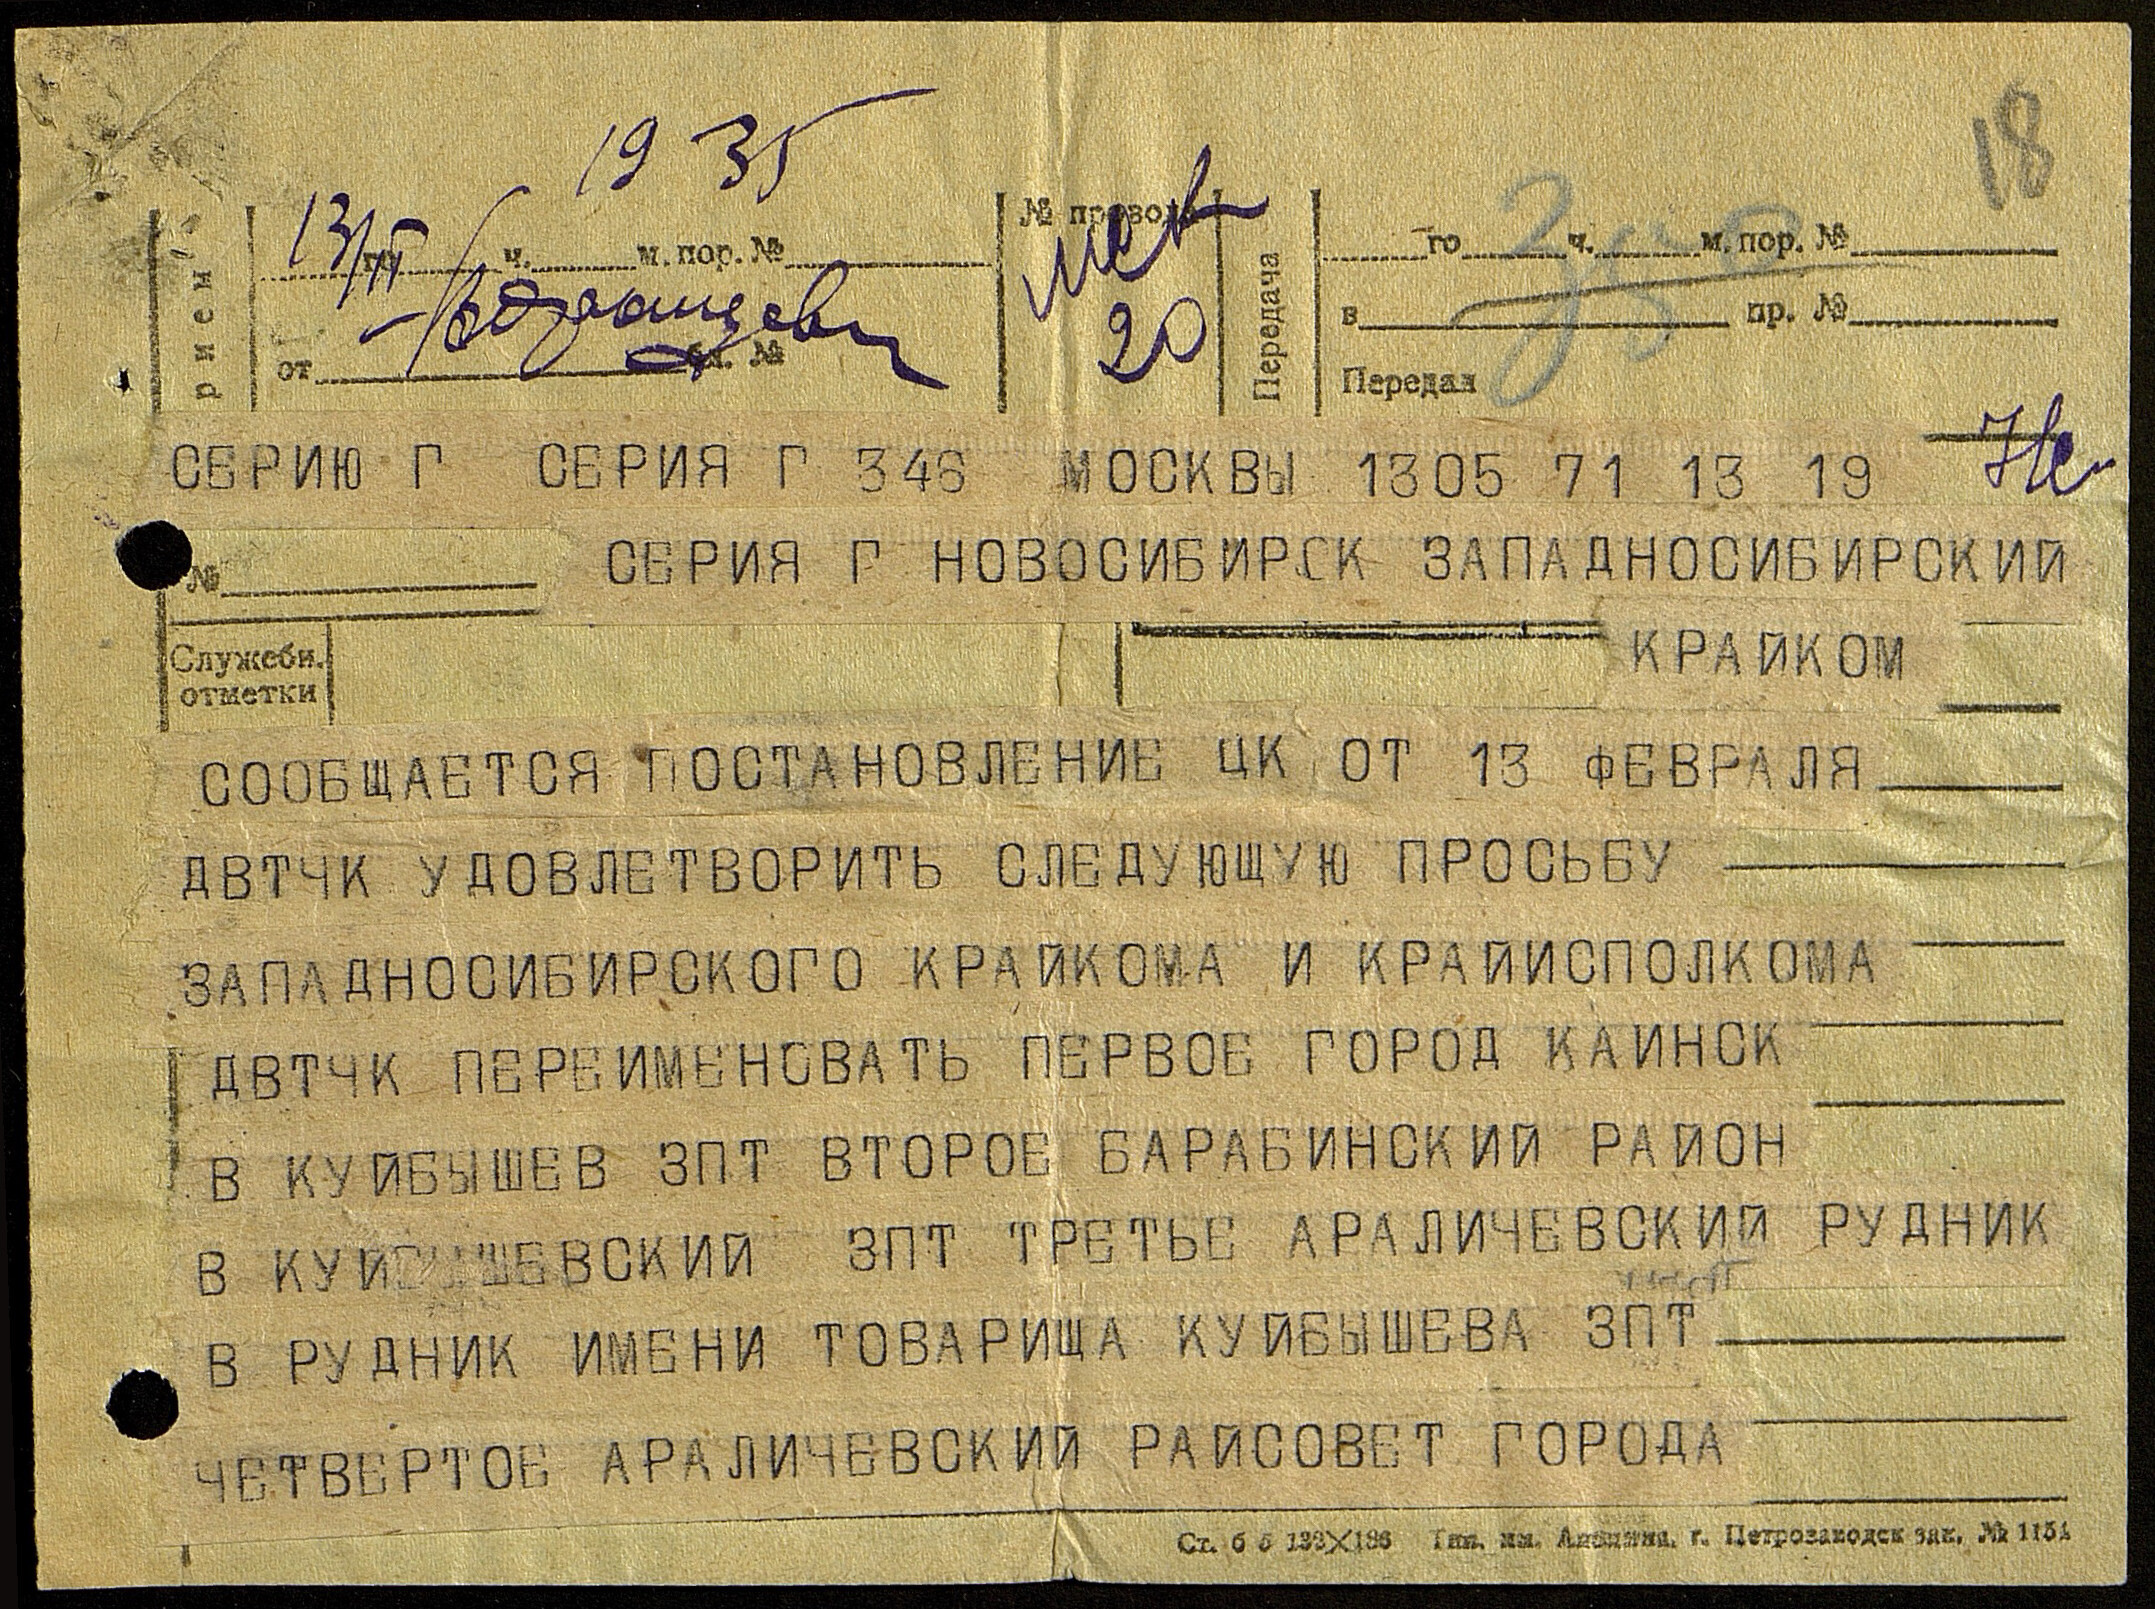 18
19 35
13/II го ч. м. пор. №
№ провода
го ч. м. пор. №
рием
от бл. №
20
Передача
в пр. №
Передал
СЕРИЮ Г СЕРИЯ Г 346 МОСКВЫ 1305 71 13 19
№ СЕРИЯ Г НОВОСИБИРСК ЗАПАДНОСИБИРСКИЙ
КРАЙКОМ
Служебн.
отметки
СООБЩАЕТСЯ ПОСТАНОВЛЕНИЕ ЦК ОТ 13 ФЕВРАЛЯ
ДВТЧК УДОВЛЕТВОРИТЬ СЛЕДУЮЩУЮ ПРОСЬБУ
ЗАПАДНОСИБИРСКОГО КРАЙКОМА И КРАЙИСПОЛКОМА
ДВТЧК ПЕРЕИМЕНОВАТЬ ПЕРВОЕ ГОРОД КАИНСК
В КУЙБЫШЕВ ЗПТ ВТОРОЕ БАРАБИНСКИЙ РАЙОН
В КУЙБЫШЕВСКИЙ ЗПТ ТРЕТЬЕ АРАЛИЧЕВСКИЙ РУДНИК
В РУДНИК ИМЕНИ ТОВАРИЩА КУЙБЫШЕВА ЗПТ
ЧЕТВЕРТОЕ АРАЛИЧЕВСКИЙ РАЙСОВЕТ ГОРОДА
Ст. б 5 Тип. им. Анохина, г. Петрозаводск зак. № 1154